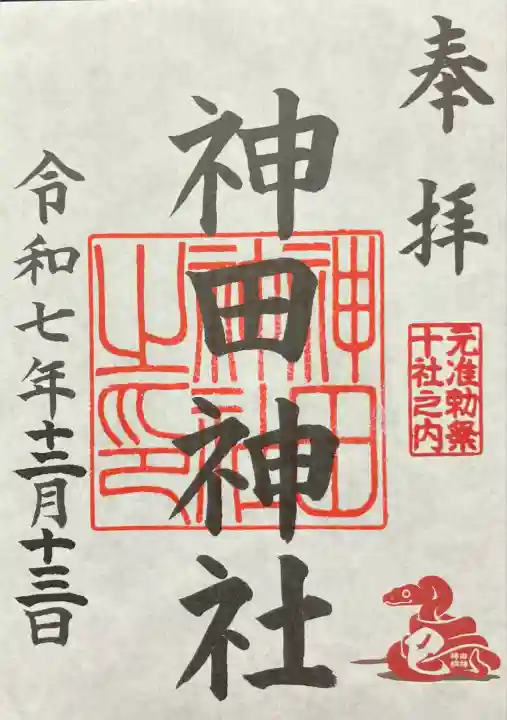 奉拝
元准勅祭
十社之内
神田神社
神田
神社
之印
令和七年十二月十三日
巳